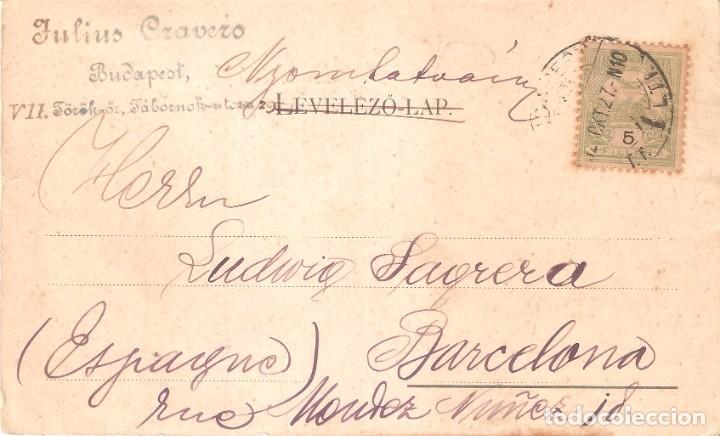 Julius Cravero
Budapest,
VII. Török-őr, Tábornok-utcza 29.
Nyomtatvány
LEVELEZŐ-LAP.
5
FILLÉR
Herrn
Ludwig Sagrera
(Espagne) Barcelona
rue Mendez Nuñez 18
todocoleccion